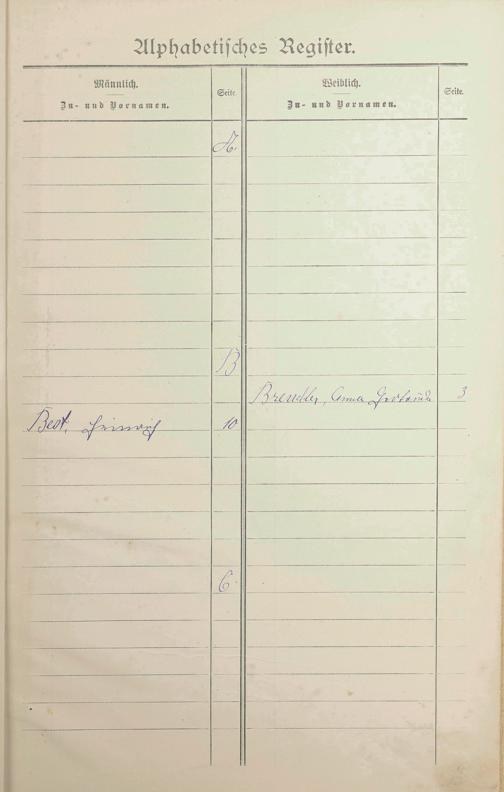 Alphabetisches Register.
Männlich.
Zu- und Vornamen.
Seite.
Weiblich.
Zu- und Vornamen.
Seite.
A.
B
Anna 3
Best, Heinrich 10
C.